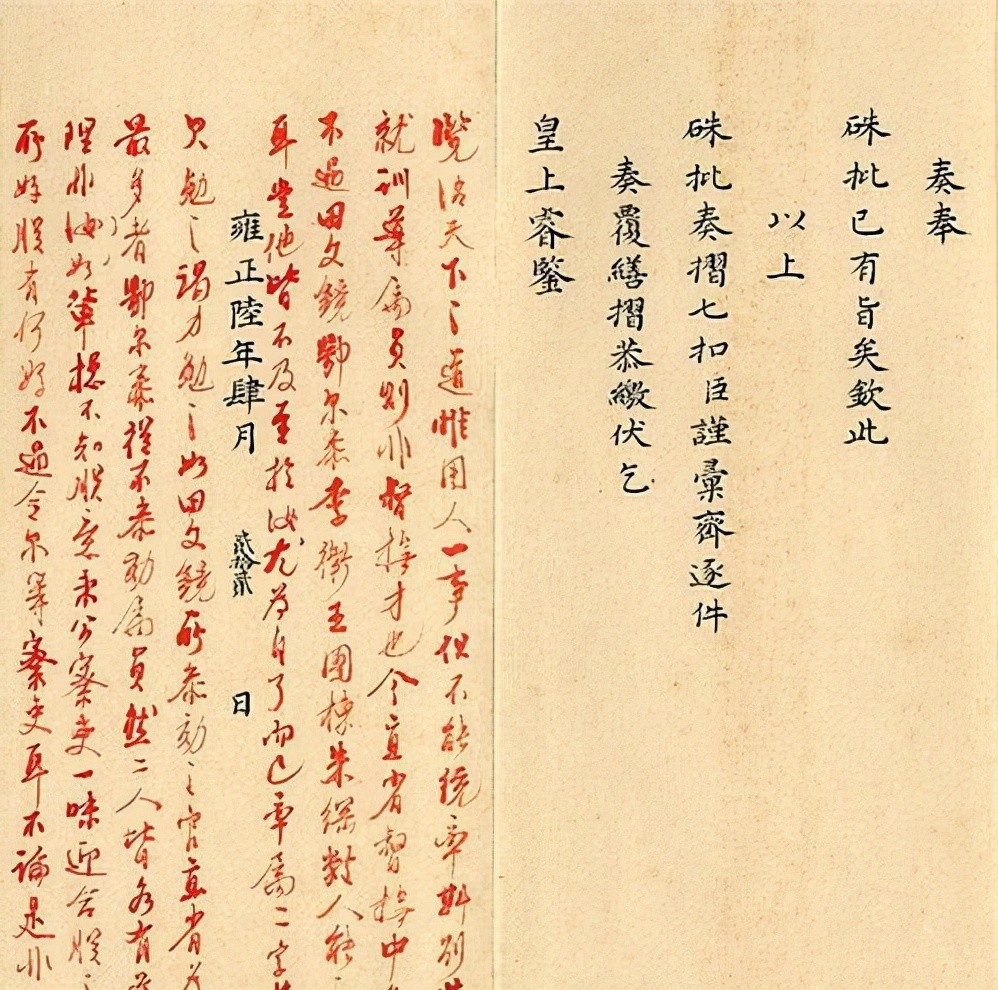 奏奉
硃批已有旨矣欽此
以上
硃批奏摺七扣臣謹彙齊逐件
奏覆繕摺恭繳伏乞
皇上睿鑒
覽治天下之道惟用人一事但不能統率別
就訓導屬員則非督撫才也今直省督撫中
不過田文鏡鄂尔泰李衛王國棟朱綱數人能
耳豈他皆不及至於汝尤為自了而已率屬二字
雍正陸年肆月貳拾貳日
只勉之竭力勉之如田文鏡所参劾之官直省為
最多者鄂尔泰從不参劾屬員然二人皆各有
理非汝輩揔不知朕意秉公察吏一味迎合朕之
所好朕有何好不過令尔等察吏耳不論是非